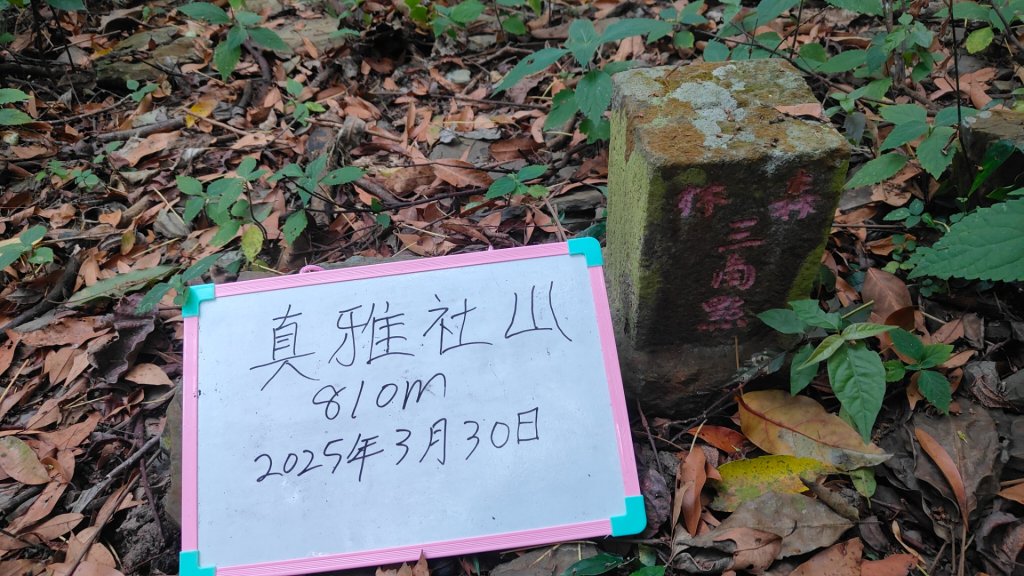 真雅社山
810m
2025年3月30日
森林
三南營